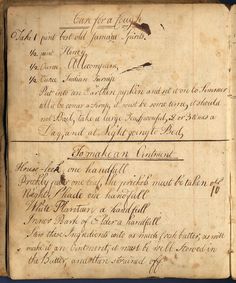 Cure for a Cough
Take 1 pint best old Jamaica Spirits
1/2 pint Honey
1/2 Ounce Allicompain,
1/2 Ounce Indian Turnip
Put into an Earthen pipkin and set it on to Simmer
till it be comes a Sirup, it must be some time, it should
not Boil, take a large Teaspoonful, 2 or 3 times a
Day, and at Night going to Bed
To make an Ointment
House-leek one handfull
Prickly pear one leaf, the prickles must be taken off
Night Shade one handfull
White Plantain a handfull
Inner Bark of Elder a handfull
Stew these Ingredients into as much fresh butter, as will
make it an Ointment, it must be well Stewed in
the Butter, and then strained off